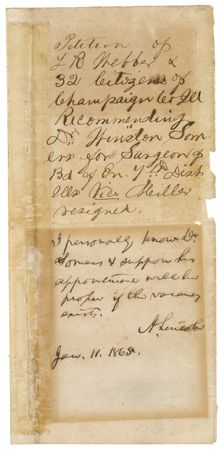 Petition of
L R Webber &
32 Citizens of
Champaign Co Ill
Recommending
Dr Winston Som
ers for Surgeon of
Bd of En. 7th Dist
Ills Vice Hiller
resigned.
I personally know Dr
Somers & suppose his
appointment will be
proper if the vacancy
exists.
A. Lincoln
Jan. 11. 1865.